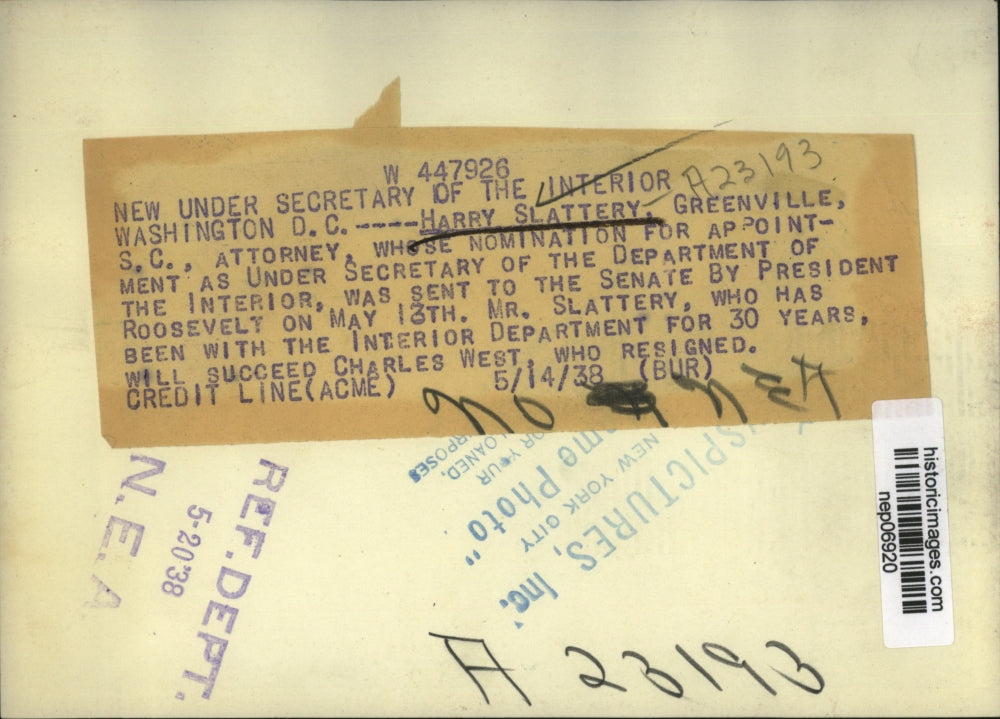 W 447926
NEW UNDER SECRETARY OF THE INTERIOR
A23193
WASHINGTON D.C.----HARRY SLATTERY, GREENVILLE,
S.C., ATTORNEY, WHOSE NOMINATION FOR APPOINT-
MENT AS UNDER SECRETARY OF THE DEPARTMENT OF
THE INTERIOR, WAS SENT TO THE SENATE BY PRESIDENT
ROOSEVELT ON MAY 13TH. MR. SLATTERY, WHO HAS
BEEN WITH THE INTERIOR DEPARTMENT FOR 30 YEARS,
WILL SUCCEED CHARLES WEST, WHO RESIGNED.
CREDIT LINE(ACME) 5/14/38 (BUR)
NO
OR YOUR
LOANED,
RPOSES
SPICTURES, Inc.
NEW YORK CITY
me Photo"
REF. DEPT.
5-20'38
N.E.A
A 23193
historicimages.com
nep06920